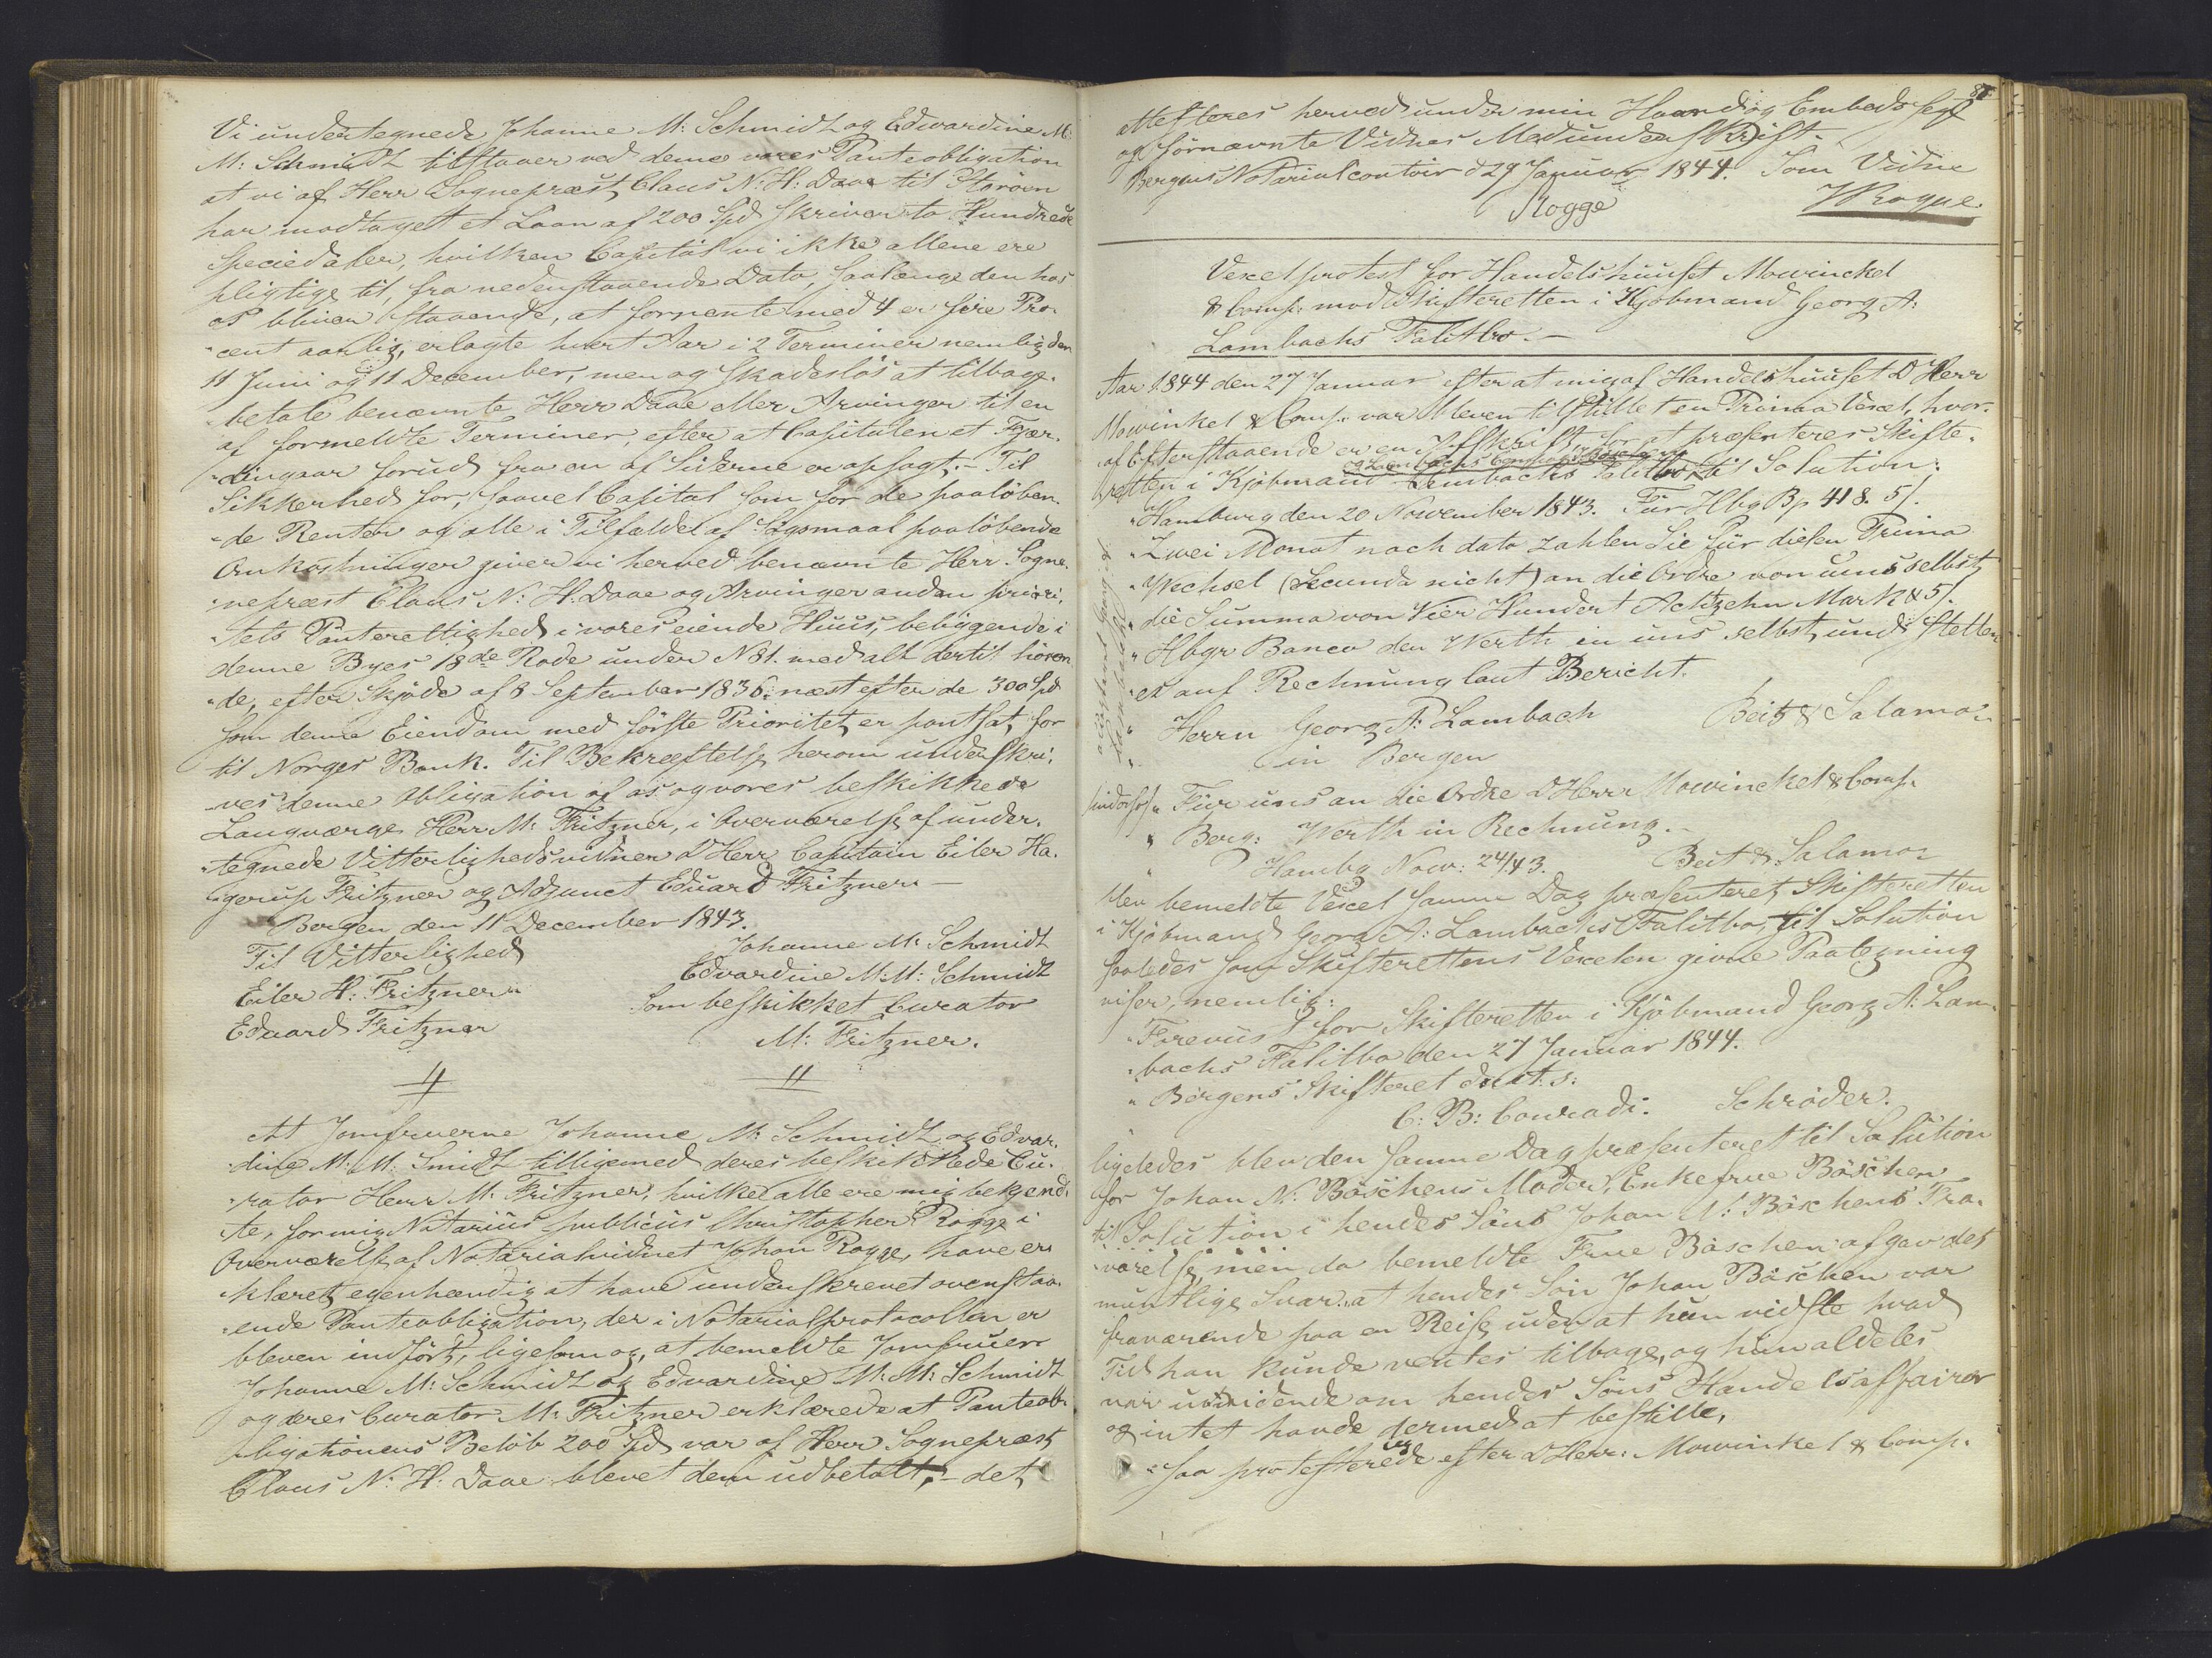 Vi undertegnede Johanne M: Schmidt og Edvardine M:
M: Schmidt tilstaaer ved denne vores Panteobligation
at vi af Herr Sognepræst Claus N: H: Daae til Storöen
har modtaget et Laan af 200 Spd skriver to Hundrede
Speciedaler, hvilken Capital vi ikke allene ere
pligtige til, fra nedenstaaende Dato, saalænge den hos
os bliver bestaaende, at forrente med 4 er fire Pro-
-cent aarlig, erlagte hvert Aar i 2 Terminer nemlig den
11 Juni og 11 December, men og skadeslös at tilbage-
-betale benævnte Herr Daae eller Arvinger til en
af formeldte Terminer, efter at Capitalen et Fjær-
-dingaar forud fra en af Siderne er opsagt. - Til
Sikkerhed for, saavel Capital som for de paalöben-
-de Renter og alle i Tilfældet af Sögsmaal paalöbende
Omkostninger giver vi herved benævnte Herr Sogne-
-nepræst Claus N: H: Daae og Arvinger anden priori-
-tets Panterettighed i vores eiende Huus, beliggende i
denne Byes 18de Rode under N 81. med alt dertil hören-
-de, efter Skjöde af 8 September 1836. næst efter de 300 Spd
som denne Eiendom med förste Prioritet er pantsat for
til Norges Bank. Til Bekræftelse herom underskri-
-ves denne Obligation af os og vores beskikkede
Laugværge Herr M: Fritzner, i Overværelse af under-
-tegnede Vitterlighedsvidner D'Herr Capitain Eiler Ha-
-gerup Fritzner og Adjunct Eduard Fritzner. -
Bergen den 11 December 1843.
Til Vitterlighed Johanne M: Schmidt
Eiler H: Fritzner Edvardine M: M: Schmidt
Eduard Fritzner Som beskikket Curator
M: Fritzner.
At Jomfruerne Johanne M: Schmidt og Edvar-
-dine M: M: Smidt tilligemed deres beskikkede Cu-
-rator Herr M: Fritzner, hvilke alle ere mig bekjend-
-te, for mig Notarius publicus Christopher Rogge i
Overværelse af Notarialvidnet Johan Rogge, have er-
-klæret egenhændig at have underskrevet ovenstaa-
-ende Panteobligation, der i Notarialprotocollen er
bleven indfört, ligesom og, at bemeldte Jomfruer
Johanne M: Schmidt og Edvardine M: M: Schmidt
og deres Curator M: Fritzner erklærede at Panteob-
-ligationens Belöb 200 Spd var af Herr Sognepræst
Claus N: H: Daae blevet dem udbetalt, - det
attesteres herved under min Haand og Embeds Segl
og fornævnte Vidnes Medunderskrift.
Bergens Notarialcontoir d 29 Januar 1844. Som Vidne
Rogge JRogge
Vexelprotest for Handelshuuset Mowinckel
& Comp: mod Skifteretten i Kjöbmand Georg A:
Lambachs Falitbo. -
Aar 1844 den 27 Januar efter at mig af Handelshuuset D'Herr
Mowinkel & Comp: var bleven tilstillet en Prima Vexel, hvor-
-af Efterstaaende er en Afskrift for at præsenteres Skifte-
retten i Kjöbmand Lambachs Falitbo til Solution.
"Hamburg den 20 November 1843. Für Hbg Bp 418. 5/.
"Zwei Monat nach dato zahlen Sie für diesen Prima
"Wechsel (Secunda nicht) an die Ordre von uns selbst
"die Summa von Vier Hundert Achtzehn Mark & 5/.
"Hbgr Banco den Werth in uns selbst und stellen
"es auf Rechnung laut Bericht.
"Herrn Georg A: Lambach Beit & Salamon
" in Bergen
"Für uns an die Ordre D'Herr Mowinckel & Comp.
"Berg: Werth in Rechnung. -
" Hambg Nov: 24/43. Beit & Salamon
blev bemeldte Vexel samme Dag præsenteret Skifteretten
i Kjöbmand Georg A: Lambachs Falitbo, til Solution
saaledes som Skifterettens Vexelen givne Paategning
viser, nemlig:
"Foreviist for Skifteretten i Kjöbmand Georg A: Lam-
"bachs Falitbo den 27 Januar 1844.
"Bergens Skifteret dat: s:
C: B: Conradi. Schröder.
ligeledes blev den samme Dag præsenteret til Solution
for Johan N: Böschens Moder, Enkefrue Böschen
til Solution i hendes Söns Johan N: Böschens Fra-
-værelse, men da bemeldte Frue Böschen afgav det
mundtlige Svar: at hendes Sön Johan Böschen var
fraværende paa en Reise uden at hun vidste hvad
Tid han kunde ventes tilbage, og hun aldeles
var uvidende om hendes Söns Handelsaffairer
og intet havde dermed at bestille,
saa protesterede jeg efter D'Herr: Mowinkel & Comp.